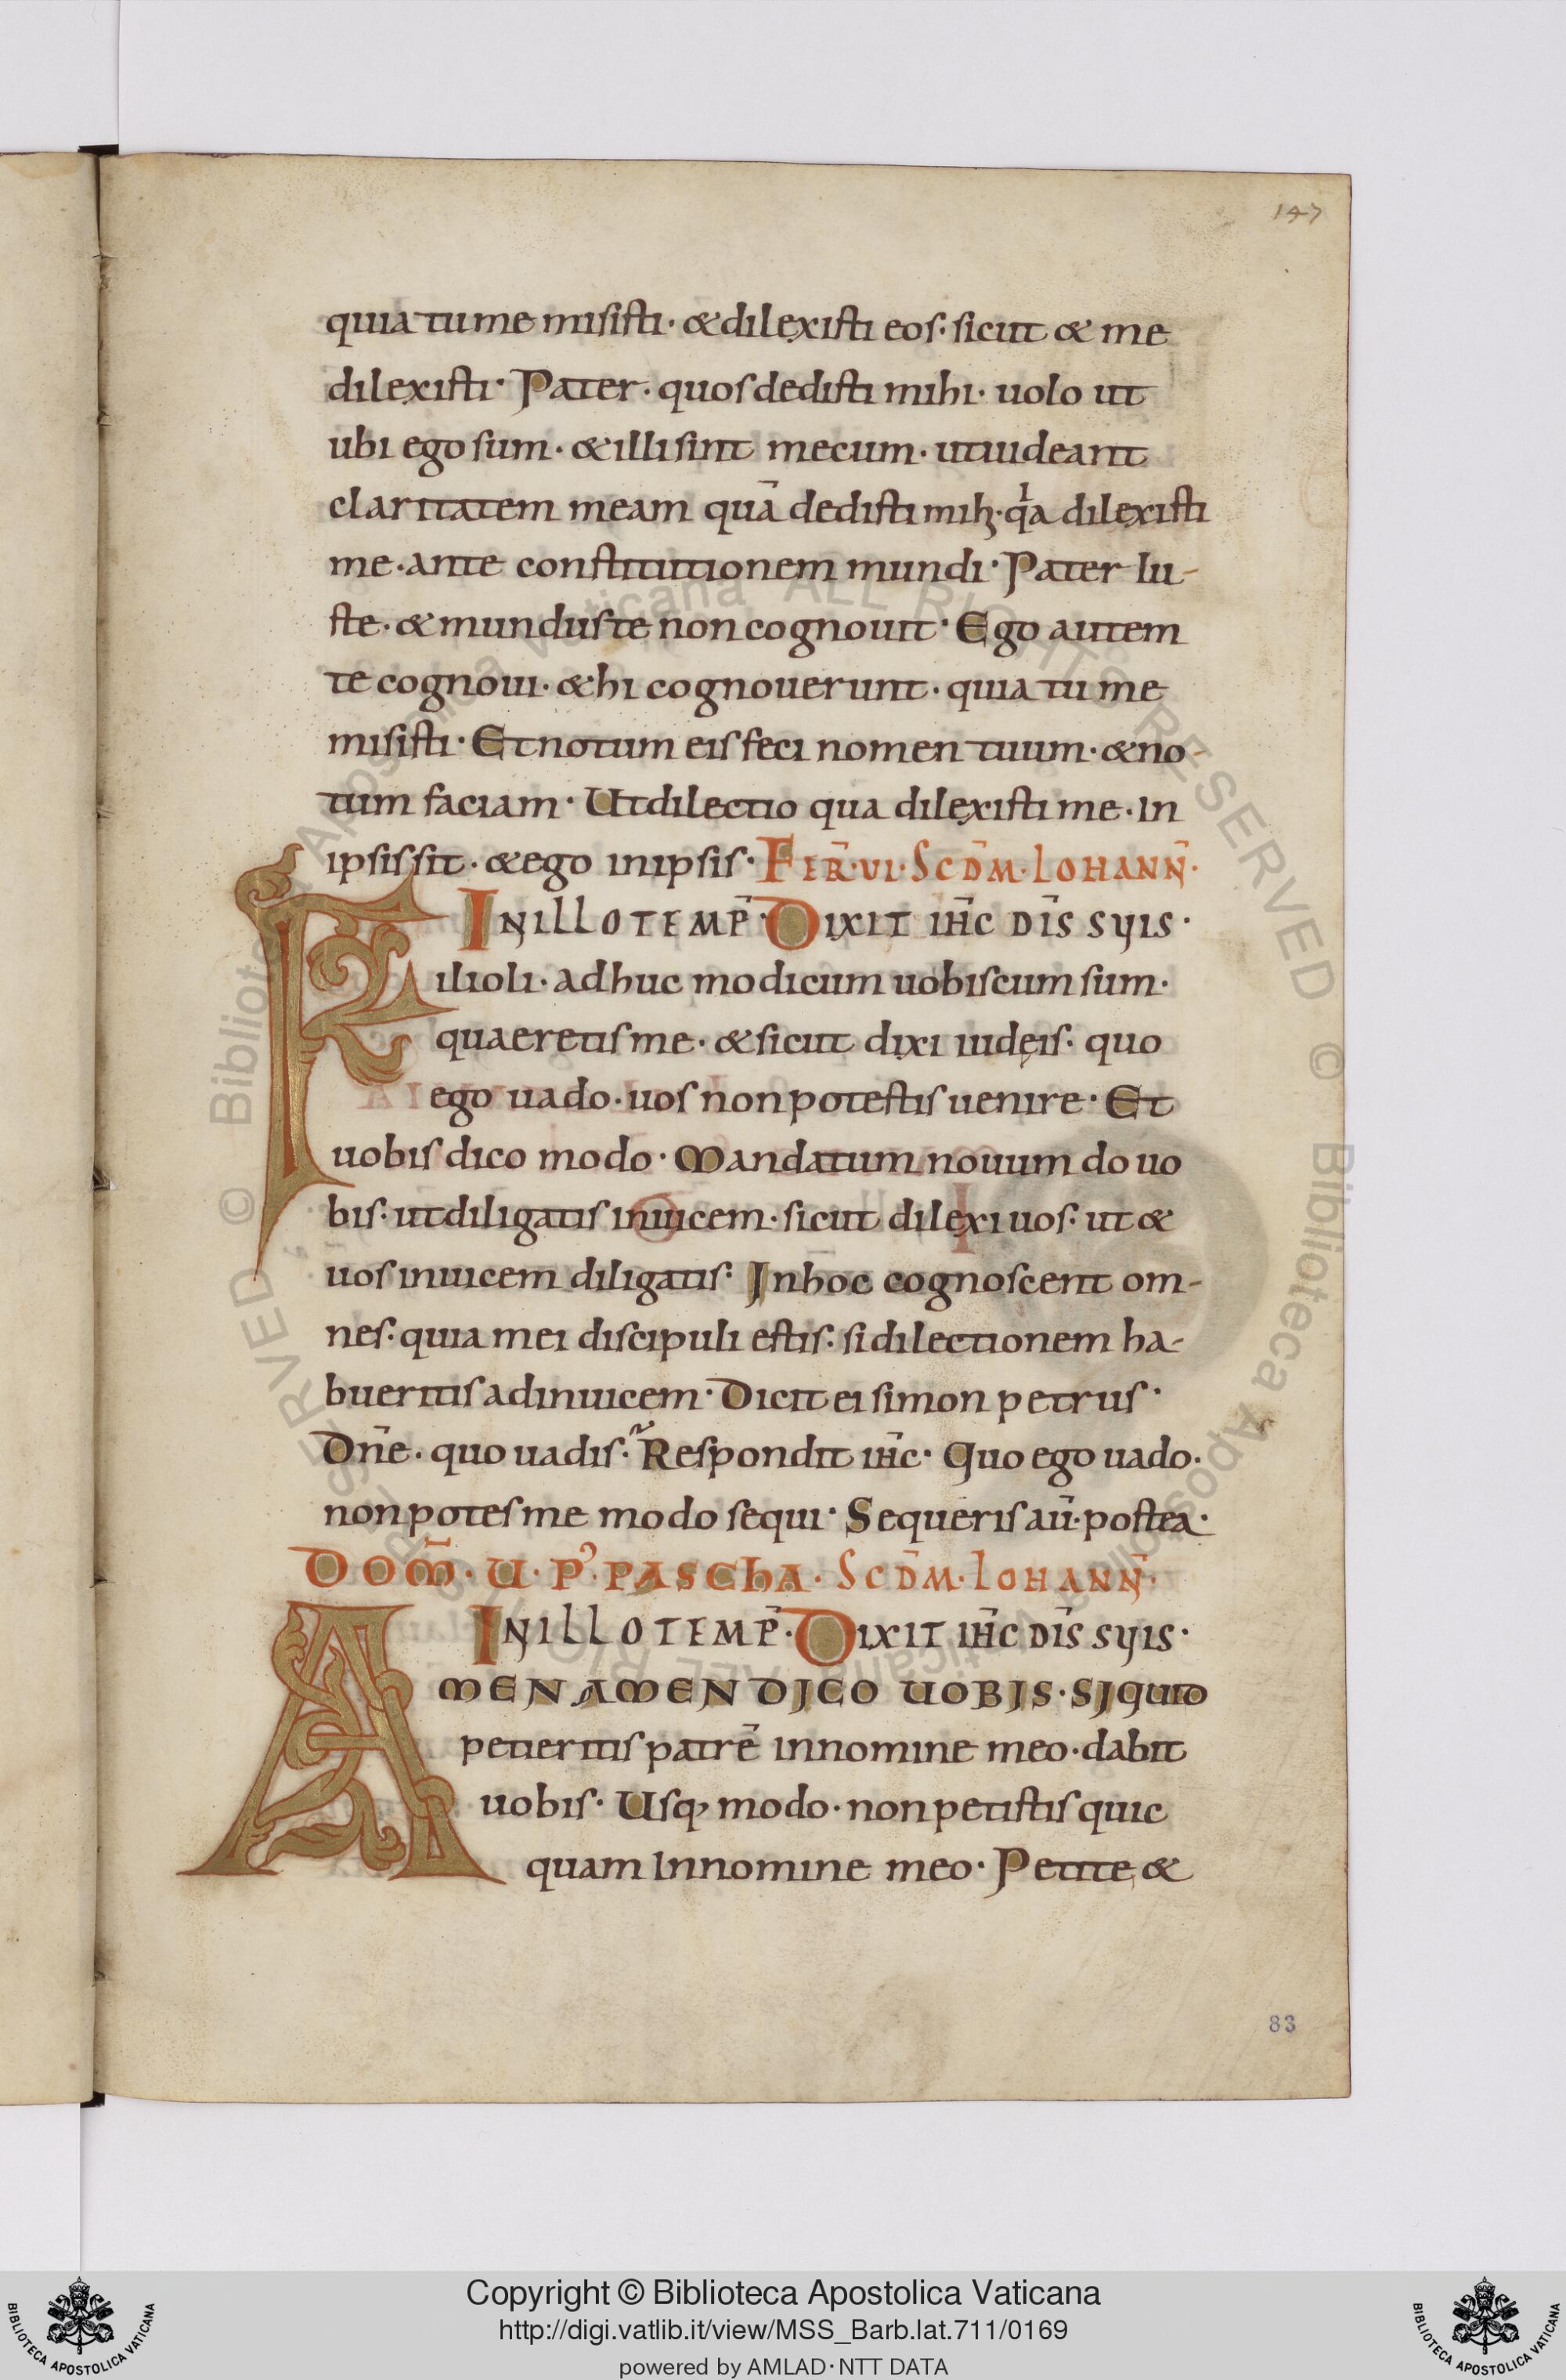 147
quia tu me misisti· & dilexisti eos· sicut & me
dilexisti· Pater· quos dedisti mihi· uolo ut
ubi ego sum· & illi sint mecum· ut uideant
claritatem meam quā dedisti mihꝫ· qͥa dilexisti
me· ante constitutionem mundi· Pater Iu-
ste· & mundus te non cognouit· Ego autem
te cognoui· & hi cognouerunt· quia tu me
misisti· Et notum eis feci nomen tuum· & no-
tum faciam· Ut dilectio qua dilexisti me· In
ipsis sit· & ego in ipsis· FER̄·VI·SCD̄M·IOHANN̄·
IN ILLO TEMP̄· DIXIT IH̄C DĪS SUIS·
Filioli· adhuc modicum uobiscum sum·
quaeretis me· & sicut dixi iudęis· quo
ego uado· uos non potestis uenire· Et
uobis dico modo· Mandatum nouum do uo
bis· ut diligatis inuicem· sicut dilexi uos· ut &
uos inuicem diligatis· In hoc cognoscent om-
nes· quia mei discipuli estis· si dilectionem ha-
bueritis adinuicem· Dicit ei simon petrus·
Dn̄e· quo uadis· Respondit ih̄c· Quo ego uado·
non potes me modo sequi· Sequeris aū· postea·
DOM̄· U· P᾽· PASCHA· SCD̄M· IOHANN̄·
IN ILLO TEMP̄· DIXIT IH̄C DĪS SUIS·
AMEN AMEN DICO UOBIS· SI QUID
petieritis patrē in nomine meo· dabit
uobis· Usq; modo· non petistis quic
quam In nomine meo· Petite &
83
© Biblioteca Apostolica Vaticana ALL RIGHTS RESERVED © Biblioteca Apostolica Vaticana ALL RIGHTS RESERVED
Copyright © Biblioteca Apostolica Vaticana
http://digi.vatlib.it/view/MSS_Barb.lat.711/0169
powered by AMLAD·NTT DATA
BIBLIOTECA APOSTOLICA VATICANA
BIBLIOTECA APOSTOLICA VATICANA